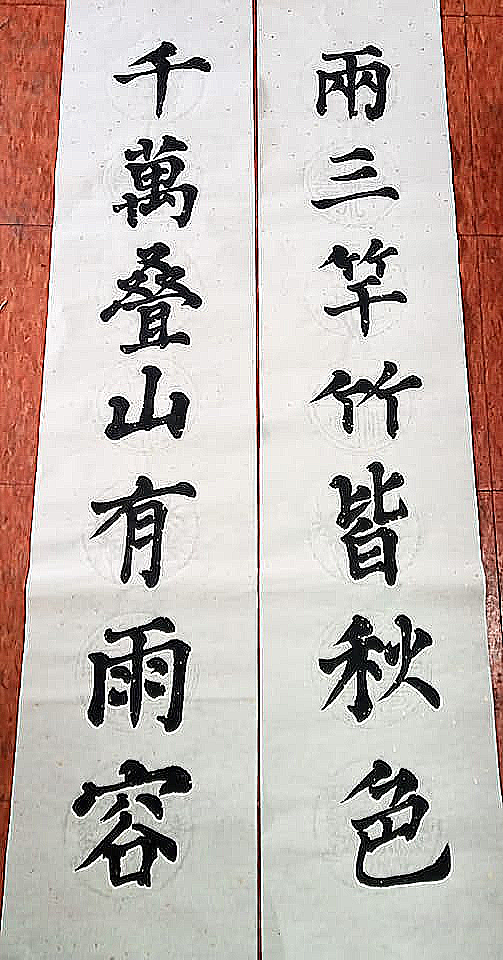 兩三竿竹皆秋色
千萬叠山有雨容